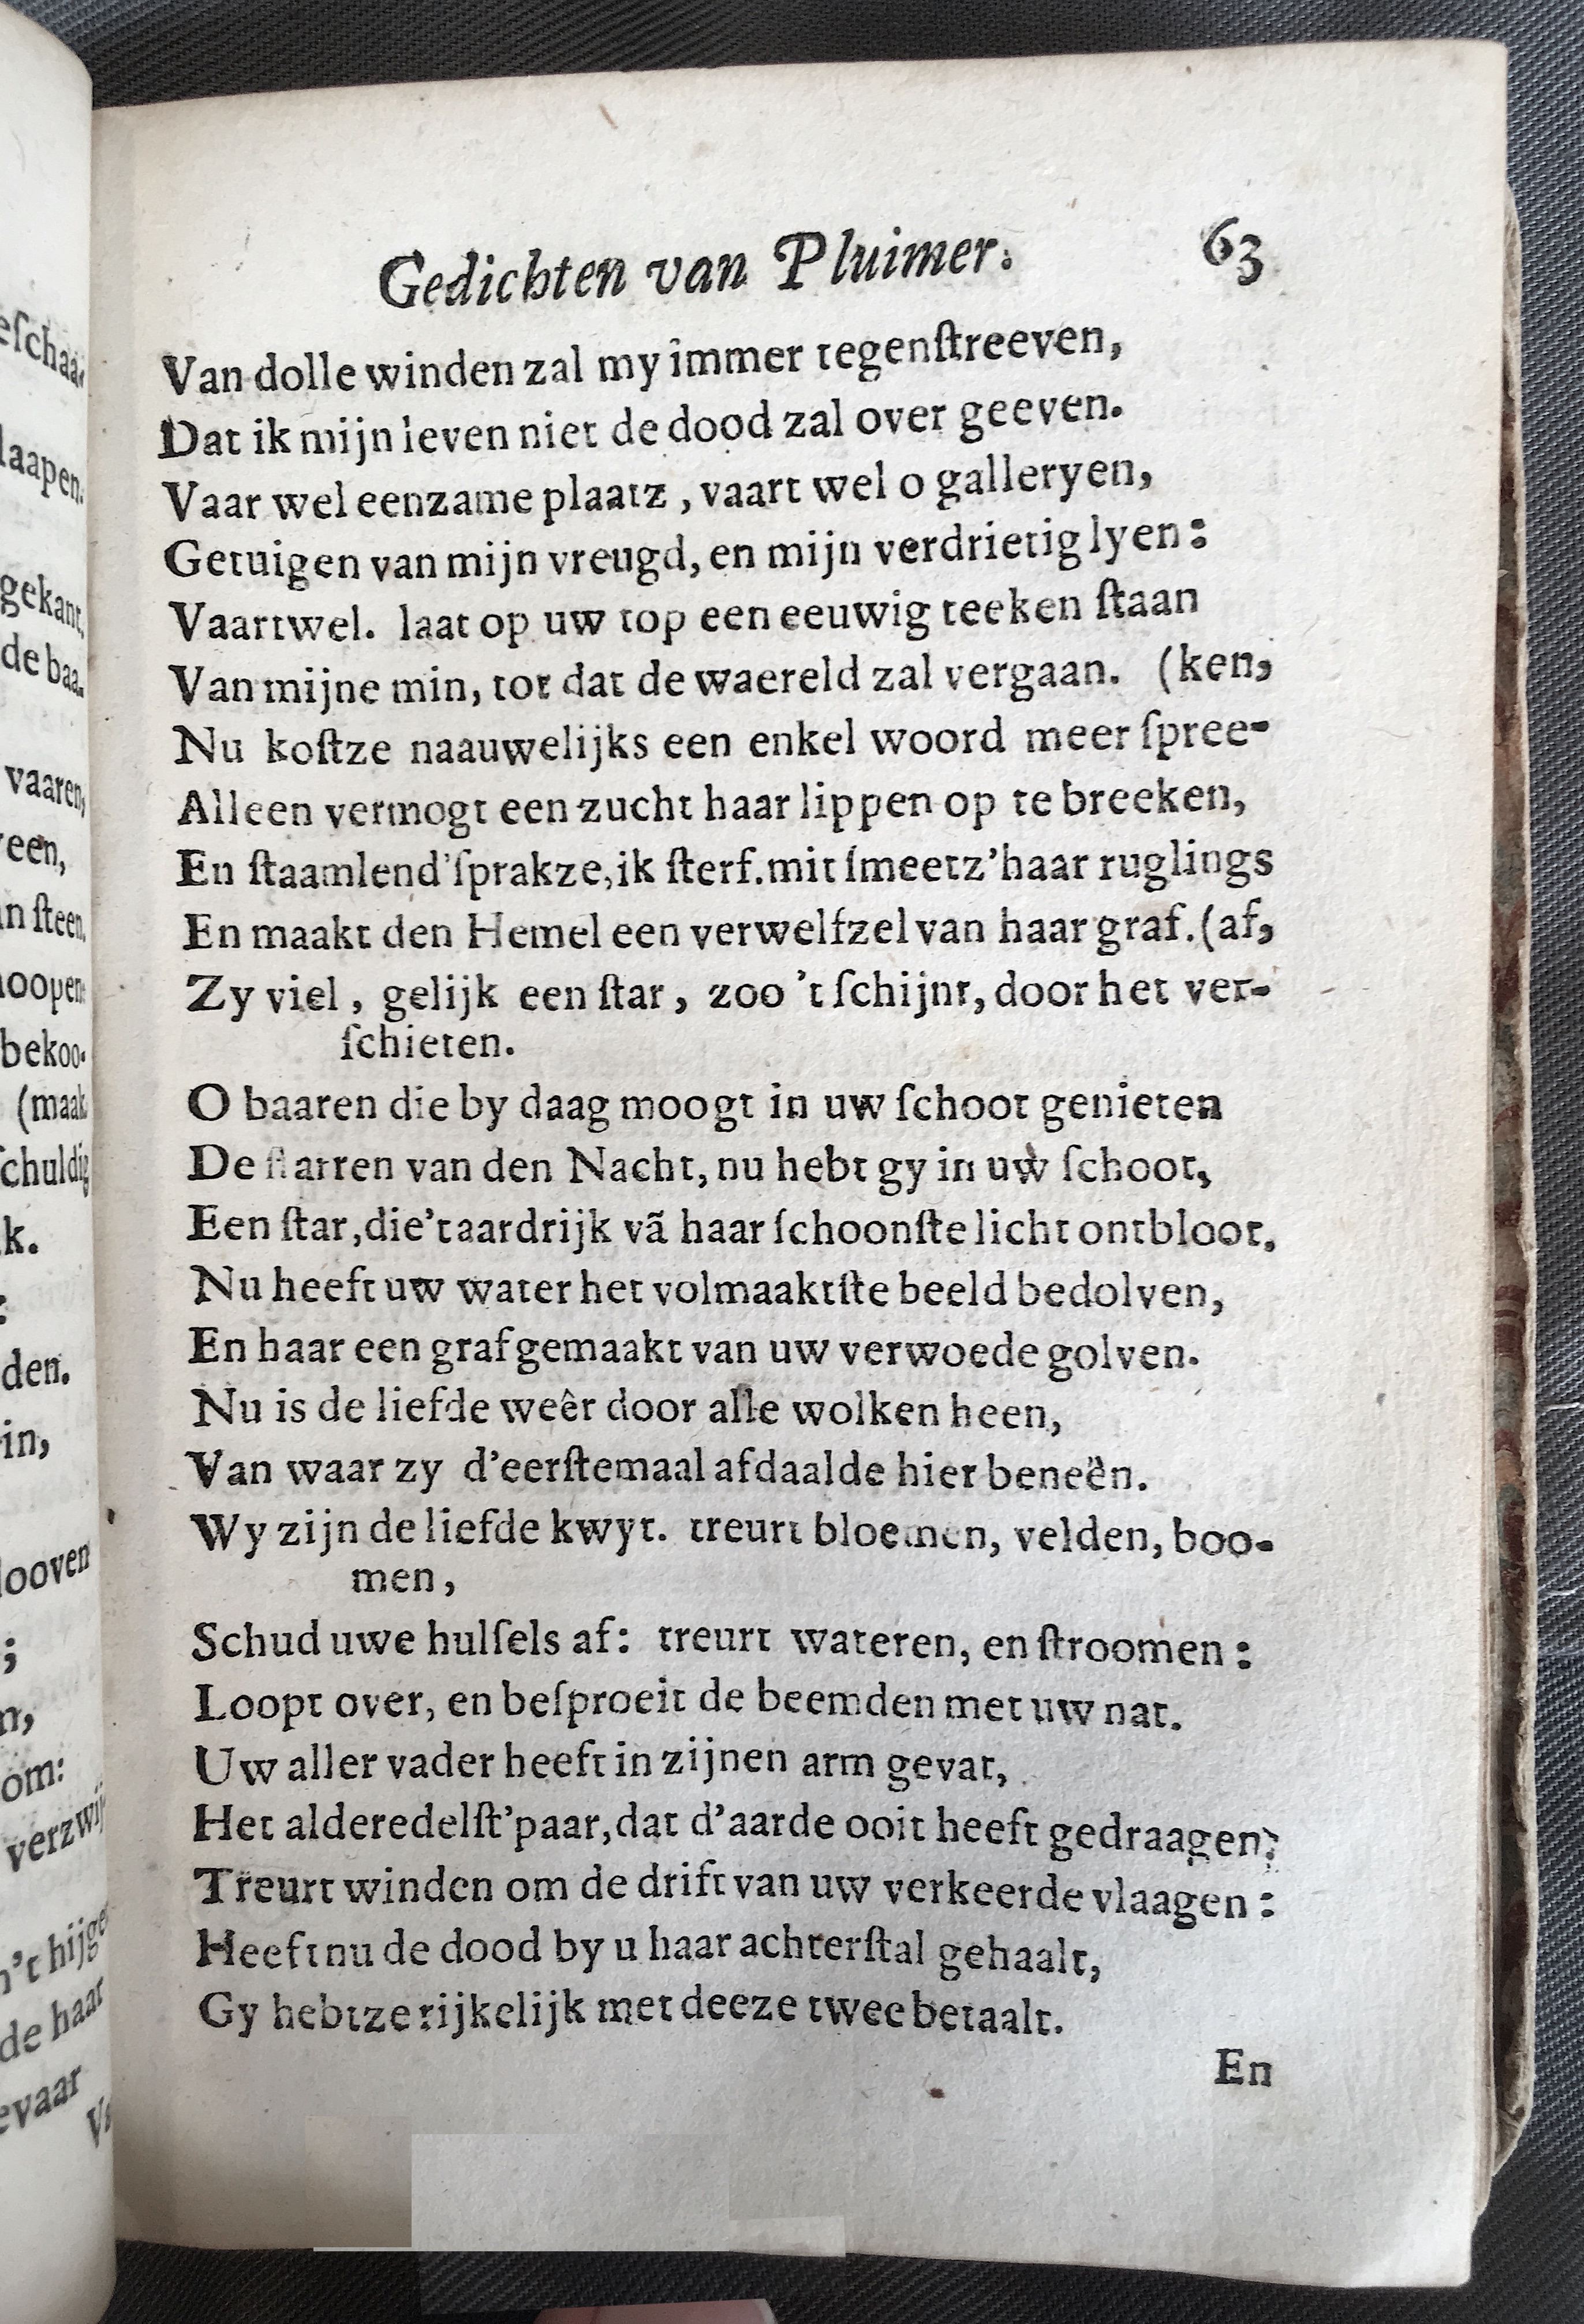 eſchaa-
laapen.
gekant,
de baa-
vaaren,
een,
n ſteen.
hoopen
bekoo-
(maak
ſchuldig
k.
:
den.
in,
looven
;
n,
om:
verzwij
n't hijge
de haar
evaar
Gedichten van Pluimer. 63
Van dolle winden zal my immer tegenſtreeven,
Dat ik mijn leven niet de dood zal over geeven.
Vaar wel eenzame plaatz, vaart wel o galleryen,
Getuigen van mijn vreugd, en mijn verdrietig lyen:
Vaartwel. laat op uw top een eeuwig teeken ſtaan
Van mijne min, tot dat de waereld zal vergaan. (ken,
Nu koſtze naauwelijks een enkel woord meer ſpree-
Alleen vermogt een zucht haar lippen op te breeken,
En ſtaamlend' ſprakze, ik ſterf. mit ſmeetz' haar ruglings
En maakt den Hemel een verwelfzel van haar graf. (af,
Zy viel, gelijk een ſtar, zoo 't ſchijnt, door het ver-
ſchieten.
O baaren die by daag moogt in uw ſchoot genieten
De ſtarren van den Nacht, nu hebt gy in uw ſchoot,
Een ſtar, die 't aardrijk vã haar ſchoonſte licht ontbloot,
Nu heeft uw water het volmaaktſte beeld bedolven,
En haar een graf gemaakt van uw verwoede golven.
Nu is de liefde weêr door alle wolken heen,
Van waar zy d'eerſtemaal afdaalde hier beneën.
Wy zijn de liefde kwyt. treurt bloemen, velden, boo-
men,
Schud uwe hulſels af: treurt wateren, en ſtroomen:
Loopt over, en beſproeit de beemden met uw nat.
Uw aller vader heeft in zijnen arm gevat,
Het alderedelſt' paar, dat d'aarde ooit heeft gedraagen;
Treurt winden om de drift van uw verkeerde vlaagen:
Heeft nu de dood by u haar achterſtal gehaalt,
Gy hebtze rijkelijk met deeze twee betaalt.
En